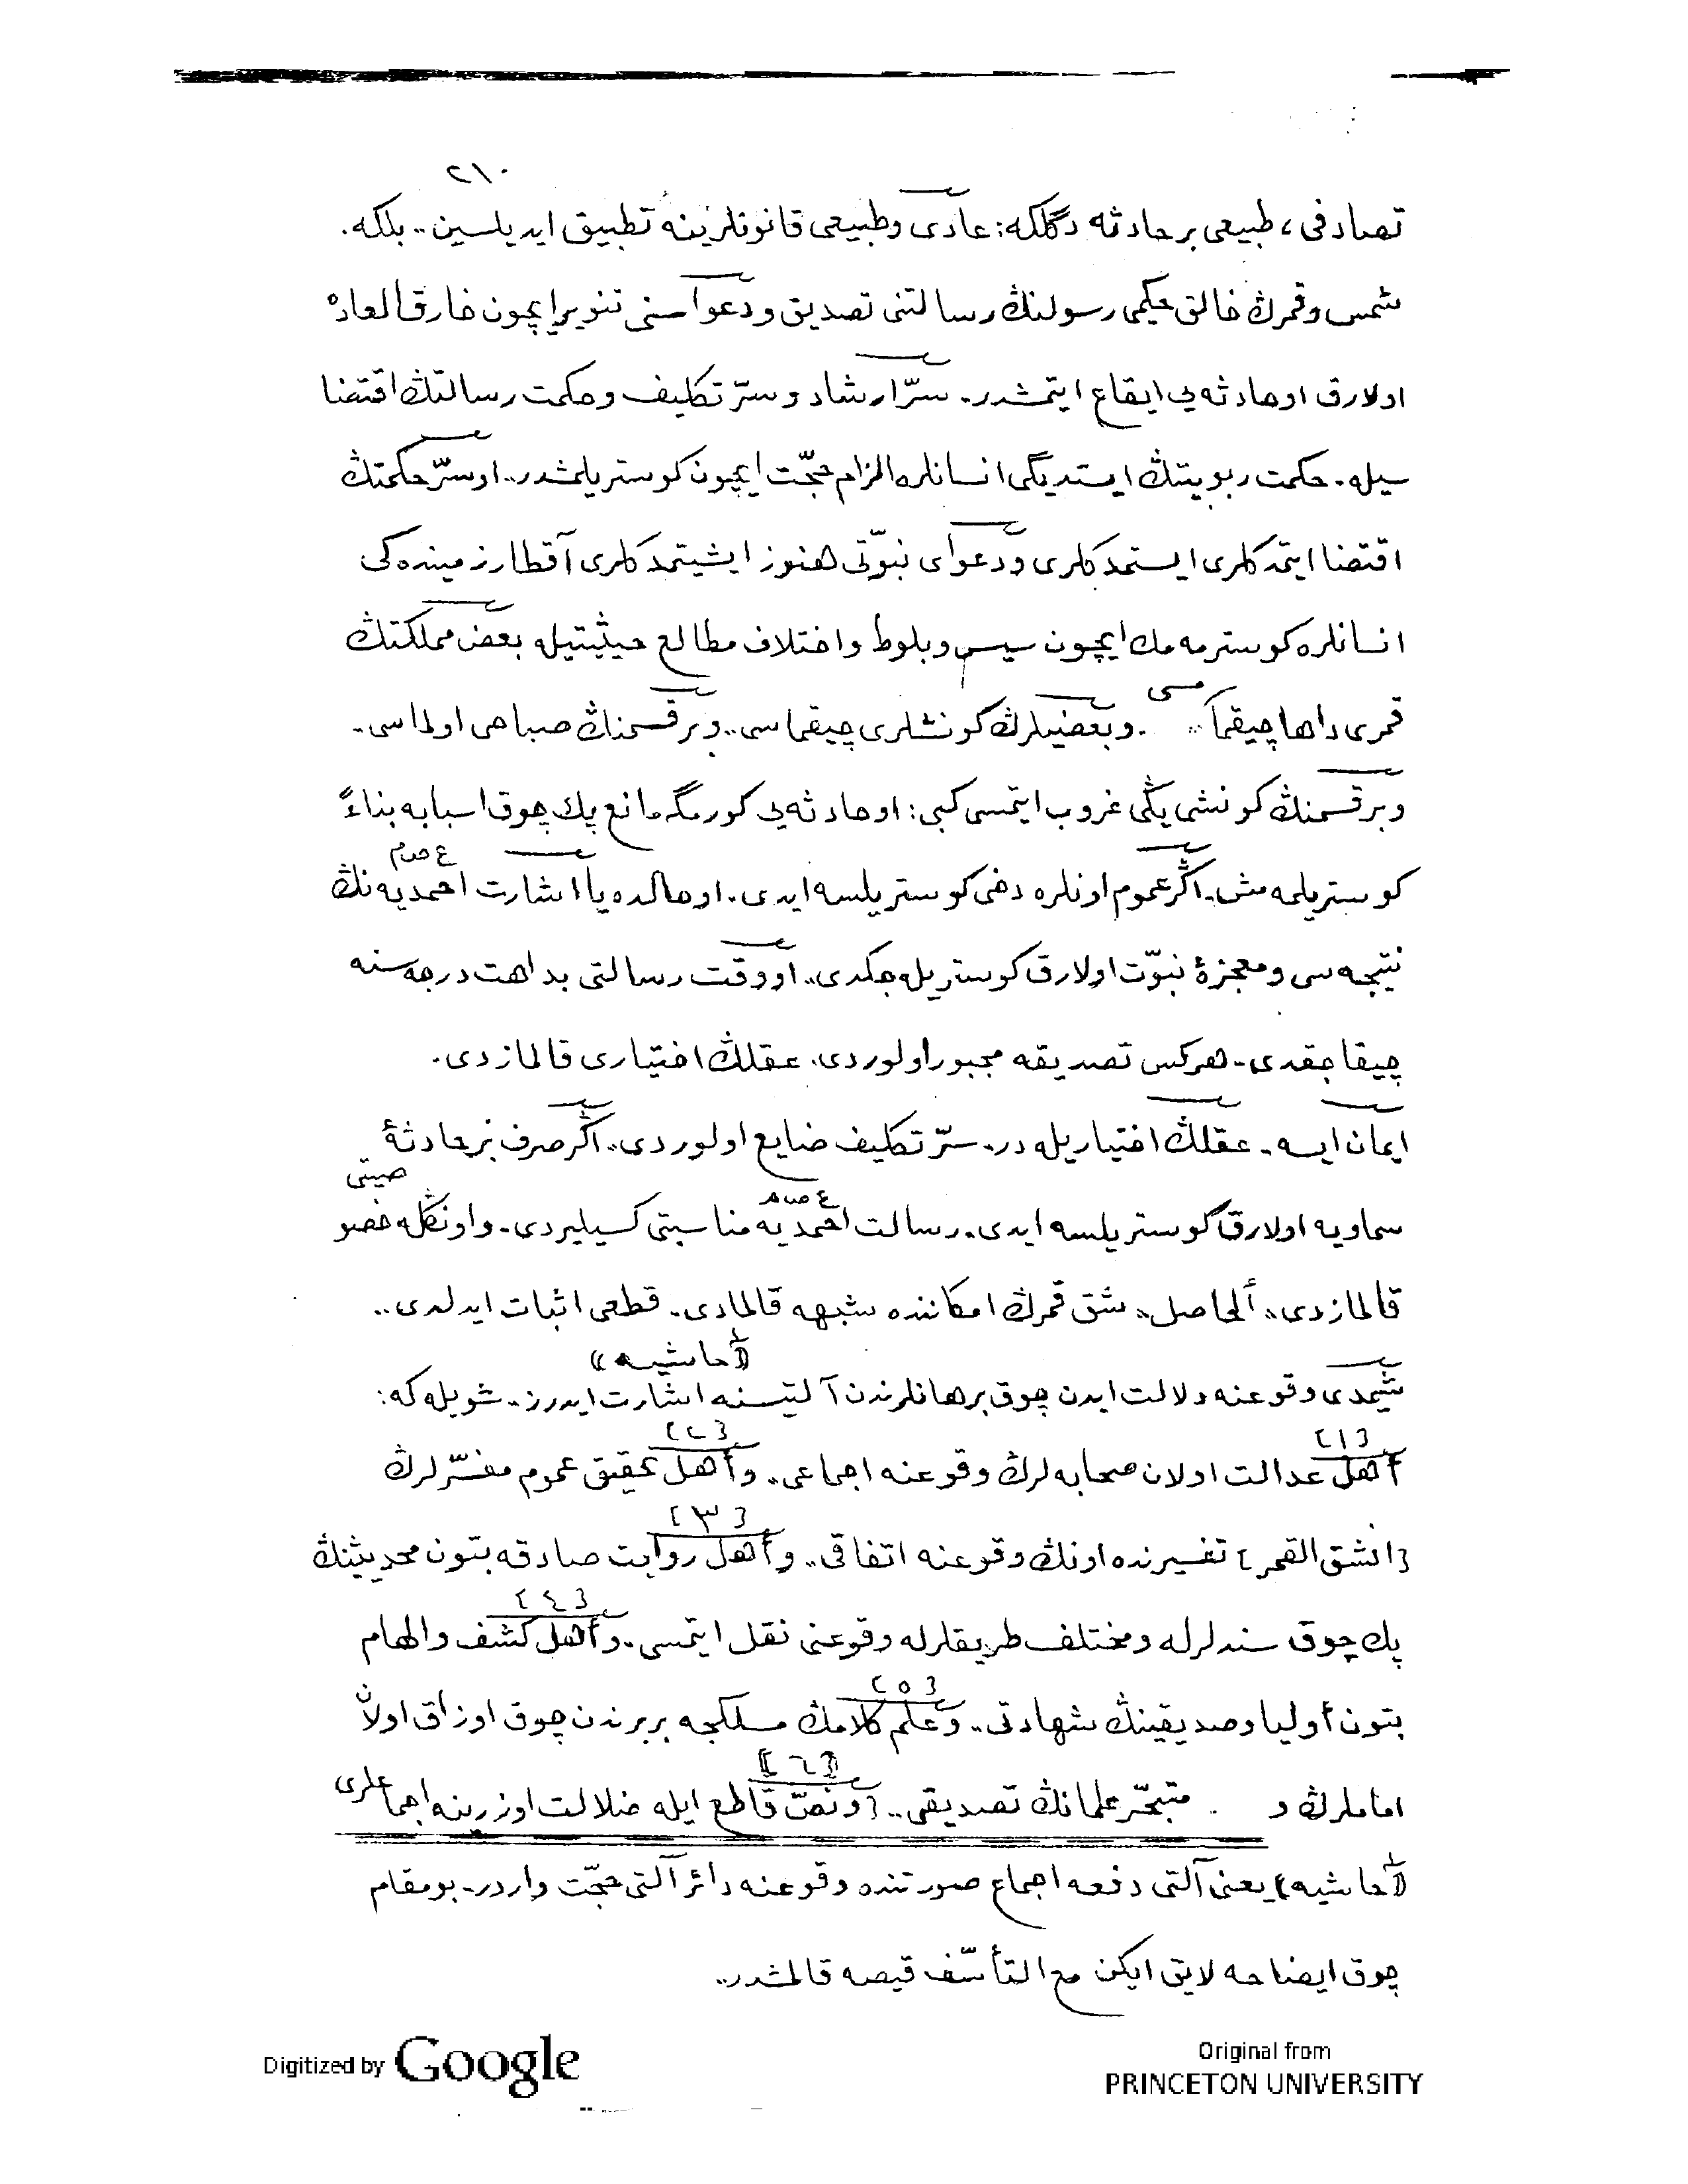 ٢١٠
تصادفى، طبيعى بر حادثه دگلكه: عادى وطبيعى قانونلرينه تطبيق ايديلسين.. بلكه.
شمس وقمرڭ خالق حكيمى رسولنڭ رسالتنى تصديق ودعواسنى تنوير ايچون خارق العاده
اولارق او حادثه‌يى ايقاع ايتمشدر. سرّ ارشاد وسرّ تكليف وحكمت رسالتڭ اقتضا
سيله. حكمت ربوبيتڭ ايستديگى انسانلره الزام حجّت ايچون كوستريلمشدر.. او سرّ حكمتڭ
اقتضا ايتمدكلرى ايستمدكلرى ودعواى نبوّتى هنوز ايشيتمدكلرى آقطار زمينده كى
انسانلره كوسترمه مك ايچون سيس وبلوط واختلاف مطالع حيثيتيله بعض مملكتڭ
قمرى داها چيقمامسى.. وبعضيلرڭ كونشلرى چيقماسى.. وبر قسمنڭ صباحى اولماسى.
وبر قسمنڭ كونشى يڭى غروب ايتمسى كبى: او حادثه‌يى كورمگه مانع پك چوق اسبابه بناءً
كوستريلمه مش. اگر عموم اونلره دخى كوستريلسه ايدى. او حالده يا اشارت احمديه نڭ ع ص م
نتيجه سى ومعجزۀ نبوّت اولارق كوستريله جكدى.. او وقت رسالتى بداهت درجه سنه
چيقاجقدى. هركس تصديقه مجبور اولوردى. عقلڭ اختيارى قالمازدى.
ايمان ايسه. عقلڭ اختياريله در. سرّ تكليف ضايع اولوردى.. اگر صرف بر حادثۀ
سماويه اولارق كوستريلسه ايدى. رسالت احمديه ع ص م مناسبتى كسيليردى. واونڭله خصوصيتى
قالمازدى.. ألحاصل.. شق قمرڭ امكاننده شبهه قالمادى. قطعى اثبات ايدلدى..
(حاشيه)
شيمدى وقوعنه دلالت ايدن چوق برهانلرندن آلتيسنه اشارت ايدرز. شويله كه:
[١] أهل عدالت اولان صحابه لرڭ وقوعنه اجماعى. [٢] وأهل تحقيق عموم مفسّرلرڭ
[انشق القمر] تفسيرنده اونڭ وقوعنه اتفاقى.. [٣] وأهل روايت صادقه بتون محديثنڭ
پك چوق سندلرله ومختلف طريقلرله وقوعنى نقل ايتمسى. [٤] وأهل كشف والهام
بتون أوليا وصديقينڭ شهادتى.. [٥] وعلم كلامڭ مسلكجه بربرندن چوق اوزاق اولان
اماملرڭ و متبحّر علمانڭ تصديقى.. [٦] ونصّ قاطع ايله ضلالت اوزرينه اجماعلرى
(حاشيه) يعنى آلتى دفعه اجماع صورتنده وقوعنه دائر آلتى حجّت واردر. بو مقام
چوق ايضاحه لايق ايكن مع التأسّف قيصه قالمشدر..
Digitized by Google
Original from
PRINCETON UNIVERSITY